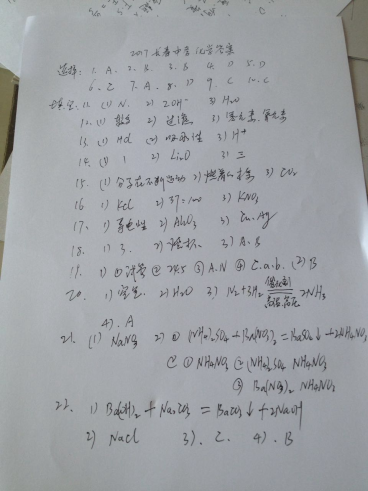 2017长春中考化学答案
选择: 1. A. 2. B. 3. B 4. D 5. D
6. C 7. A. 8. D 9. C 10. C
11. (1) N. 2) 2OH⁻ 3) H₂O
12. (1) 2) 过滤 3)
13. (1) Hcl 2) 吸水性 3) H⁺
14. (1) 1 2) Li₂O 3) 三
15. (1) 分子在不断运动 2) 3) CO₂
16. 1) Kcl 2) 37:100 3) KNO₃
17. 1) 导电性 2) Al₂O₃ 3) Cu. Ag
18. 1) 3. 2) 3) A. B
19. 1) ① 试管 ② 245 ③ A. N ④ C. a. b. (2) B
20. 1) 2) H₂O 3) N₂+3H₂ 催化剂 高温、高压 2NH₃
4). A
21. (1) NaNO₃ 2) ① (NH₄)₂SO₄ + Ba(NO₃)₂ = BaSO₄↓ + 2NH₄NO₃
② ① NH₄NO₃ ② (NH₄)₂SO₄ NH₄NO₃
③ Ba(NO₃)₂ NH₄NO₃
22. 1) Ba(OH)₂ + Na₂CO₃ = BaCO₃↓ + 2NaOH
2) NaCl 3). C. 4). B